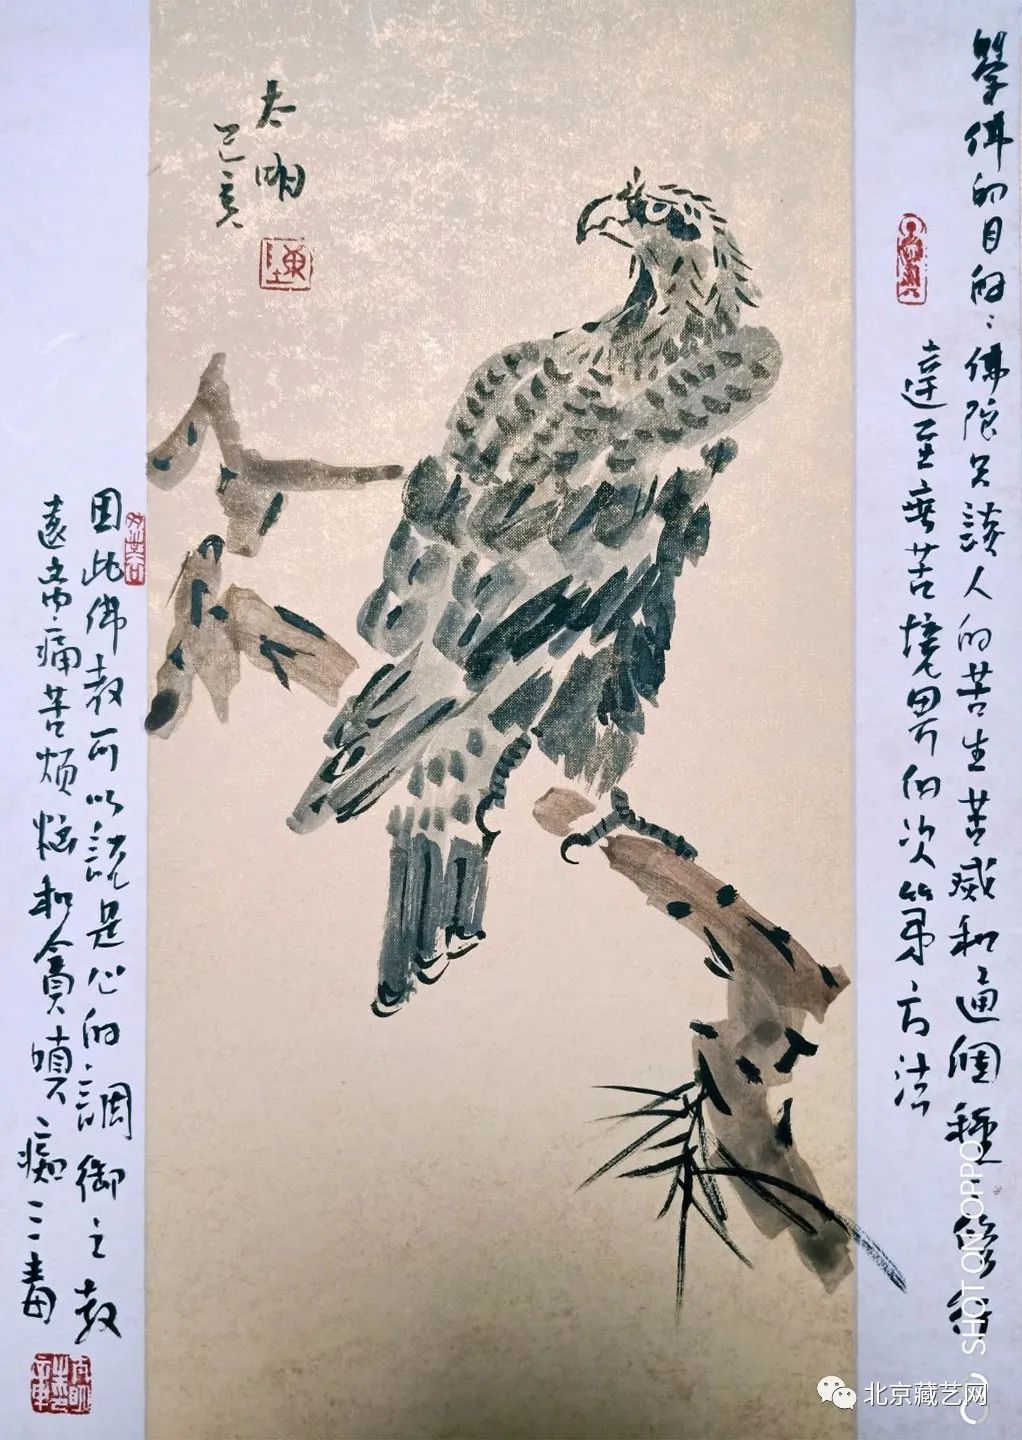 學佛的目的：佛陀只談人的苦生苦滅和通個種種修行
達至無苦境界的次第方法
太明
己亥
因此佛教可以說是心的調御之教
遠离痛苦煩惱和貪嗔痴三毒
SHOT ON OPPO
北京藏艺网